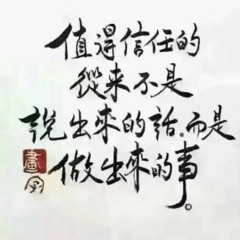 值得信任的
從来不是
説出來的話,而是
做出來的事。